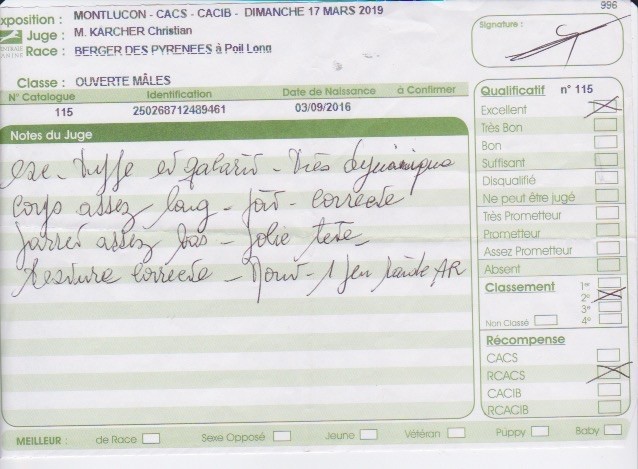 996
xposition : MONTLUCON - CACS - CACIB - DIMANCHE 17 MARS 2019
Juge : M. KARCHER Christian
Race : BERGER DES PYRENEES à Poil Long
Signature :
Classe : OUVERTE MÂLES
N° Catalogue Identification Date de Naissance à Confirmer
115 250268712489461 03/09/2016
Notes du Juge
exc - et - très dynamique
Corps assez long - - correcte
Jarret assez bas - Jolie tête -
Texture correcte - Mouv - 1 peu AR
Qualificatif n° 115
Excellent
Très Bon
Bon
Suffisant
Disqualifié
Ne peut être jugé
Très Prometteur
Prometteur
Assez Prometteur
Absent
Classement 1er
2e
3e
Non Classé 4e
Récompense
CACS
RCACS
CACIB
RCACIB
MEILLEUR : de Race Sexe Opposé Jeune Vétéran Puppy Baby